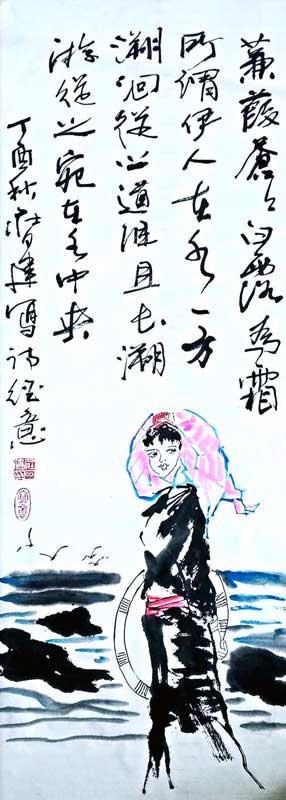 蒹葭蒼々白露為霜
所謂伊人在水一方
溯洄從之道阻且长溯
游從之宛在水中央
丁酉秋建寫诗经意